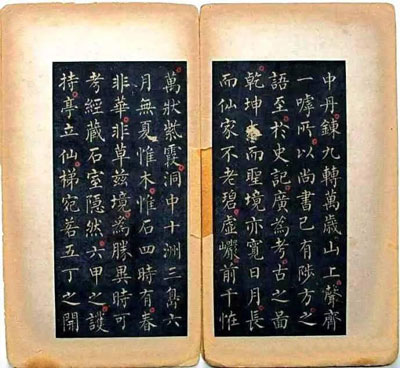 中丹鍊九轉萬歲山上聲齊
一嘑所以尚書已有陟方之
語至於史記廣為考古之圖
乾坤而聖境亦寬日月長
而仙家不老碧虛巖前千恠
萬狀紫霞洞中十洲三島六
月無夏惟木惟石四時有春
非華非草茲境為勝異時可
考經藏石室隱然六甲之護
持亭立仙梯宛若五丁之開